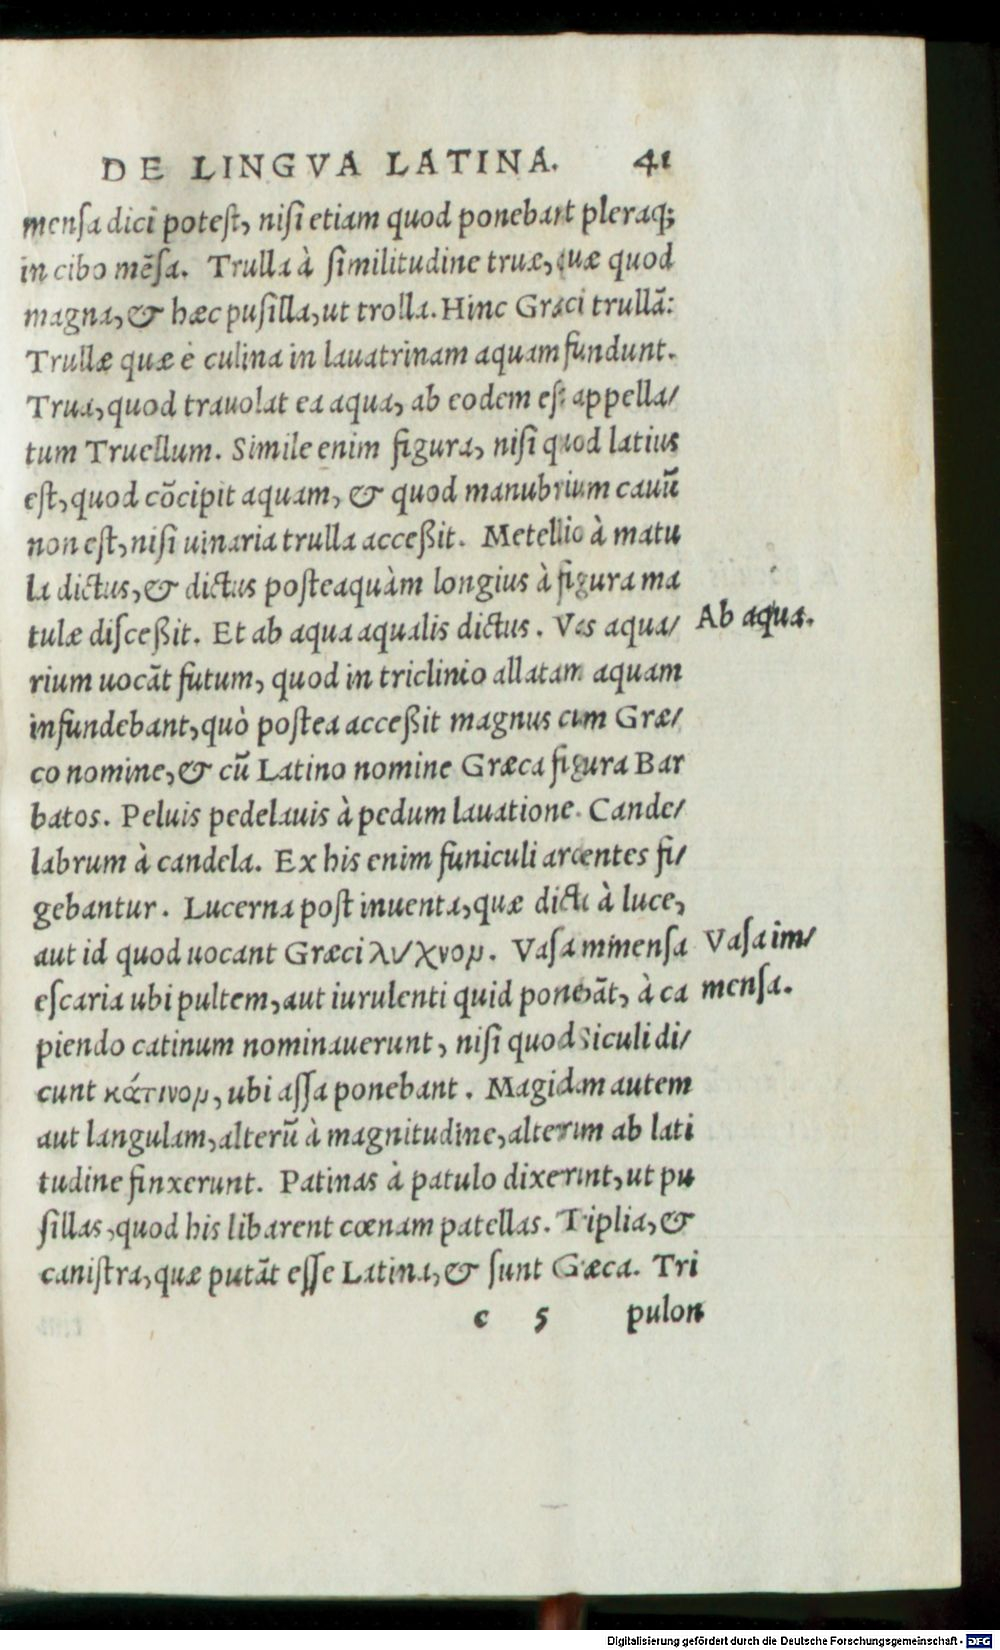 DE LINGVA LATINA. 41
mensa dici potest, nisi etiam quod ponebant pleraq;
in cibo mēsa. Trulla à similitudine truæ, quæ quod
magna, & hæc pusilla, ut trolla. Hinc Græci trullā:
Trullæ quæ è culina in lauatrinam aquam fundunt.
Trua, quod trauolat ea aqua, ab eodem est appella/
tum Truellum. Simile enim figura, nisi quod latius
est, quod cōcipit aquam, & quod manubrium cauū
non est, nisi uinaria trulla acceßit. Metellio à matu
la dictus, & dictus posteaquàm longius à figura ma
tulæ disceßit. Et ab aqua aqualis dictus. Vas aqua/
Ab aqua.
rium uocāt futum, quod in triclinio allatam aquam
infundebant, quò postea acceßit magnus cum Græ/
co nomine, & cū Latino nomine Græca figura Bar
batos. Peluis pedelauis à pedum lauatione. Cande/
labrum à candela. Ex his enim funiculi arcentes fi/
gebantur. Lucerna post inuenta, quæ dicta à luce,
aut id quod uocant Græci λύχνομ. Vasa inmensa
Vasa im/
escaria ubi pultem, aut iurulenti quid ponebāt, à ca
mensa.
piendo catinum nominauerunt, nisi quod Siculi di/
cunt κάτινομ, ubi assa ponebant. Magidam autem
aut langulam, alterū à magnitudine, alterum ab lati
tudine finxerunt. Patinas à patulo dixerunt, ut pu
sillas, quod his libarent cœnam patellas. Tiplia, &
canistra, quæ putāt esse Latina, & sunt Gæca. Tri
c 5 pulon
Digitalisierung gefördert durch die Deutsche Forschungsgemeinschaft - DFG